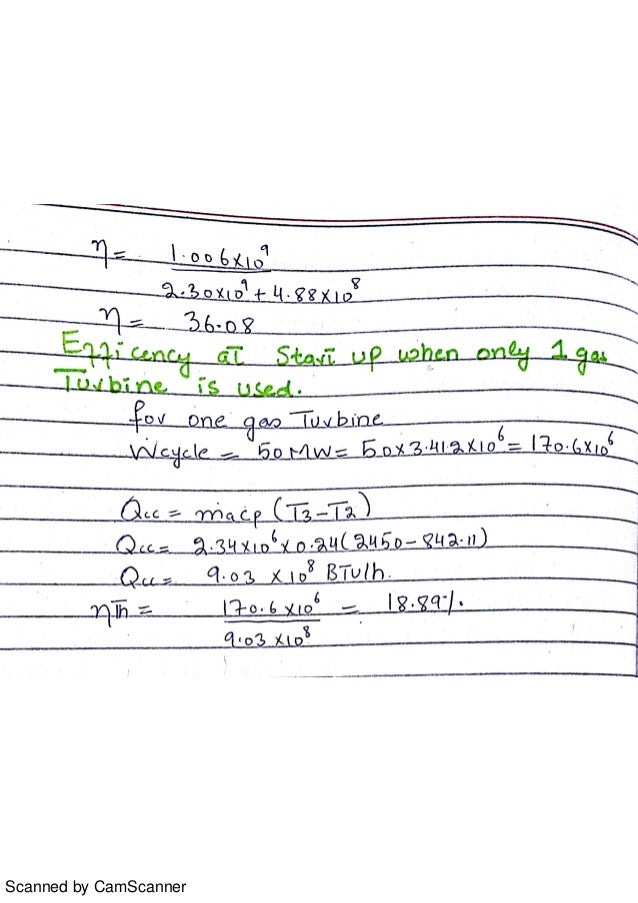 η = 1.006×10⁹
2.30×10⁹ + 4.88×10⁸
η = 36.08
Efficency at Start up when only 1 gas
Turbine is used.
for one gas Turbine
Wcycle = 50 MW = 50×3.412×10⁶ = 170.6×10⁶
Qcc = macp (T3–T2)
Qcc = 2.34×10⁶×0.24(2450–842.11)
Qcc = 9.03 ×10⁸ BTU/h.
ηTh = 170.6 ×10⁶ = 18.89%.
9.03 ×10⁸
Scanned by CamScanner